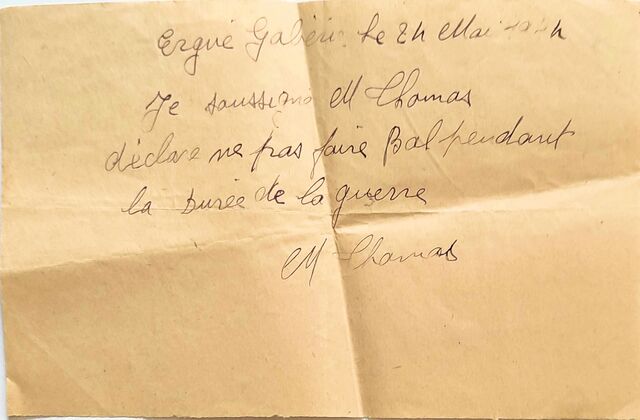 Ergué Gabéric Le 24 Mai 1944
Je soussigné M Thomas
déclare ne pas faire Bal pendant
la durée de la guerre
M Thomas